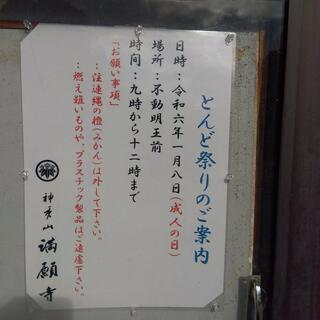 とんど祭りのご案内
日時：令和六年一月八日(成人の日)
場所：不動明王前
時間：九時から十二時まで
「お願い事項」
：注連縄の橙(みかん)は外して下さい。
：燃え難いものや、プラスチック製品はご遠慮下さい。
神秀山 満願寺